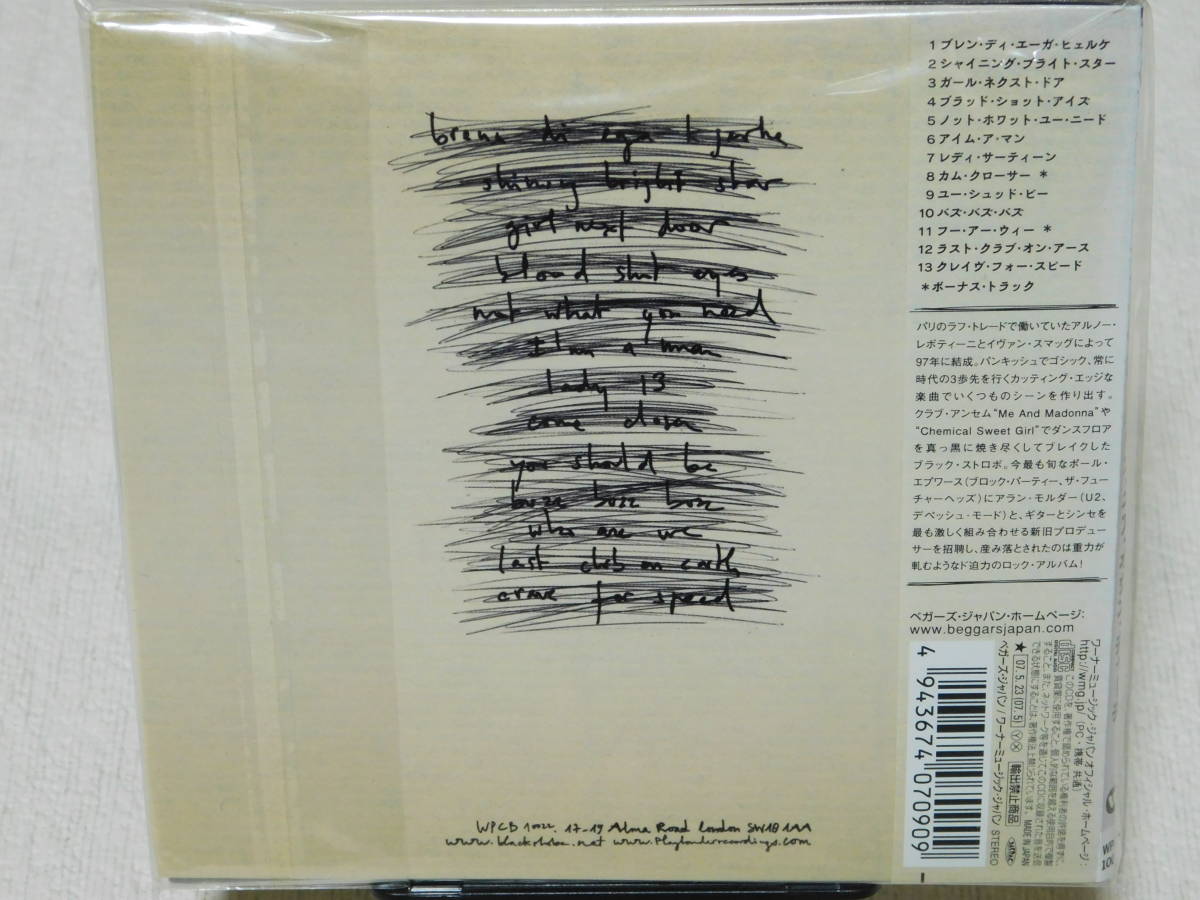 brenn di ega kjerke
shining bright star
girl next door
blood shot eyes
not what you need
I'm a man
lady 13
come closer
you should be
buzz buzz buzz
who are we
last club on earth
crave for speed
WPCB 10022. 17-19 Alma Road London SW18 1AA
www.blackstrobe.net www.Playlouderrecordings.com
1 ブレン・ディ・エーガ・ヒェルケ
2 シャイニング・ブライト・スター
3 ガール・ネクスト・ドア
4 ブラッド・ショット・アイズ
5 ノット・ホワット・ユー・ニード
6 アイム・ア・マン
7 レディ・サーティーン
8 カム・クローサー *
9 ユー・シュッド・ビー
10 バズ・バズ・バズ
11 フー・アー・ウィー *
12 ラスト・クラブ・オン・アース
13 クレイヴ・フォー・スピード
*ボーナス・トラック
パリのラフ・トレードで働いていたアルノー・
レボティーニとイヴァン・スマッグによって
97年に結成。パンキッシュでゴシック、常に
時代の3歩先を行くカッティング・エッジな
楽曲でいくつものシーンを作り出す。
クラブ・アンセム“Me And Madonna”や
“Chemical Sweet Girl”でダンスフロア
を真っ黒に焼き尽くしてブレイクした
ブラック・ストロボ。今最も旬なポール・
エプワース(ブロック・パーティー、ザ・フュー
チャーヘッズ)にアラン・モルダー(U2、
デペッシュ・モード)と、ギターとシンセを
最も激しく組み合わせる新旧プロデュー
サーを招聘し、産み落とされたのは重力が
軋むようなド迫力のロック・アルバム!
ベガーズ・ジャパン・ホームページ:
www.beggarsjapan.com
ワーナーミュージック・ジャパン オフィシャル・ホームページ:
http://wmg.jp/ (PC・携帯 共通)
このCDを、著作権で認められている権利者の許諾を得ずに、
賃貸業に使用すること、個人的な範囲を超える使用目的で複製
すること、また、ネットワーク等を通じてこのCDに収録された音を送信
できる状態にすることは、著作権法上禁じられています。 MADE IN JAPAN
★ 07.5.23 (07.5) Ⓨ Ⓧ 輸出禁止商品 STEREO
ベガーズ・ジャパン / ワーナーミュージック・ジャパン
4 943674 070909